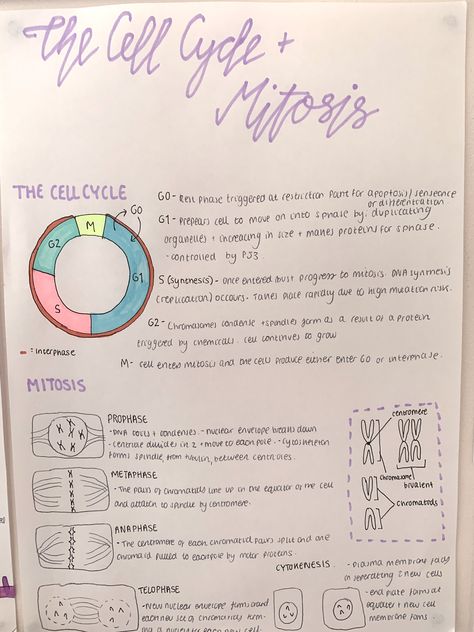 The Cell Cycle +
Mitosis
THE CELL CYCLE
G0
M
G2
G1
S
= interphase
G0 - Rest phase triggered at restriction point for apoptosis/senseence
or differentiation
G1 - Prepears cell to move on into s phase by: duplicating
organelles + increasing in size + makes proteins for s phase.
- controlled by P53.
S (synthesis) - once entered must progress to mitosis. DNA synthesis
(replication) occurs. Takes place rapidly due to high mutation risk.
G2 - Chromosomes condense + spindles form as a result of a protein
triggered by chemicals. cell continues to grow
M - cell enters mitosis and the cells produce either enter G0 or interphase.
MITOSIS
PROPHASE
- DNA coils + condenses. - nuclear envelope breaks down
- centriole divides in 2 + move to each pole. - cytoskeleton
forms spindle, from tubulin, between centrioles.
METAPHASE
- The pairs of chromatids line up in the equator of the cell
and attach to spindle by centromere.
ANAPHASE
- The centromere of each chromatid pairs split and one
chromatid pulled to each pole by motor proteins.
TELOPHASE
- New nuclear envelope forms around
each new set of chromatids forming a nucleus for each new cell.
centromere
chromosome
bivalent
chromatids
CYTOKENESIS
- plasma membrane folds
in seperating 2 new cells
- end plate forms at
equator + new cell
membrane forms